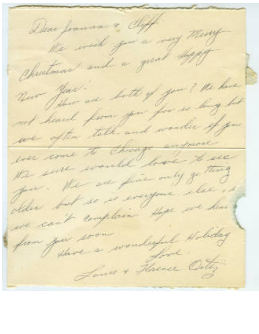 Dear Joanna & Cliff.
We wish you a very Merry
Christmas and a great Happy
New Year.
How are both of you? We have
not heard from you for so long but
we often talk and wonder if you
ever come to Chicago anymore
We sure would love to see
you. We are fine only getting
older but so is everyone else, so
we can't complain. Hope we hear
from you soon.
Have a wonderful Holiday
Love.
Louis & Florence